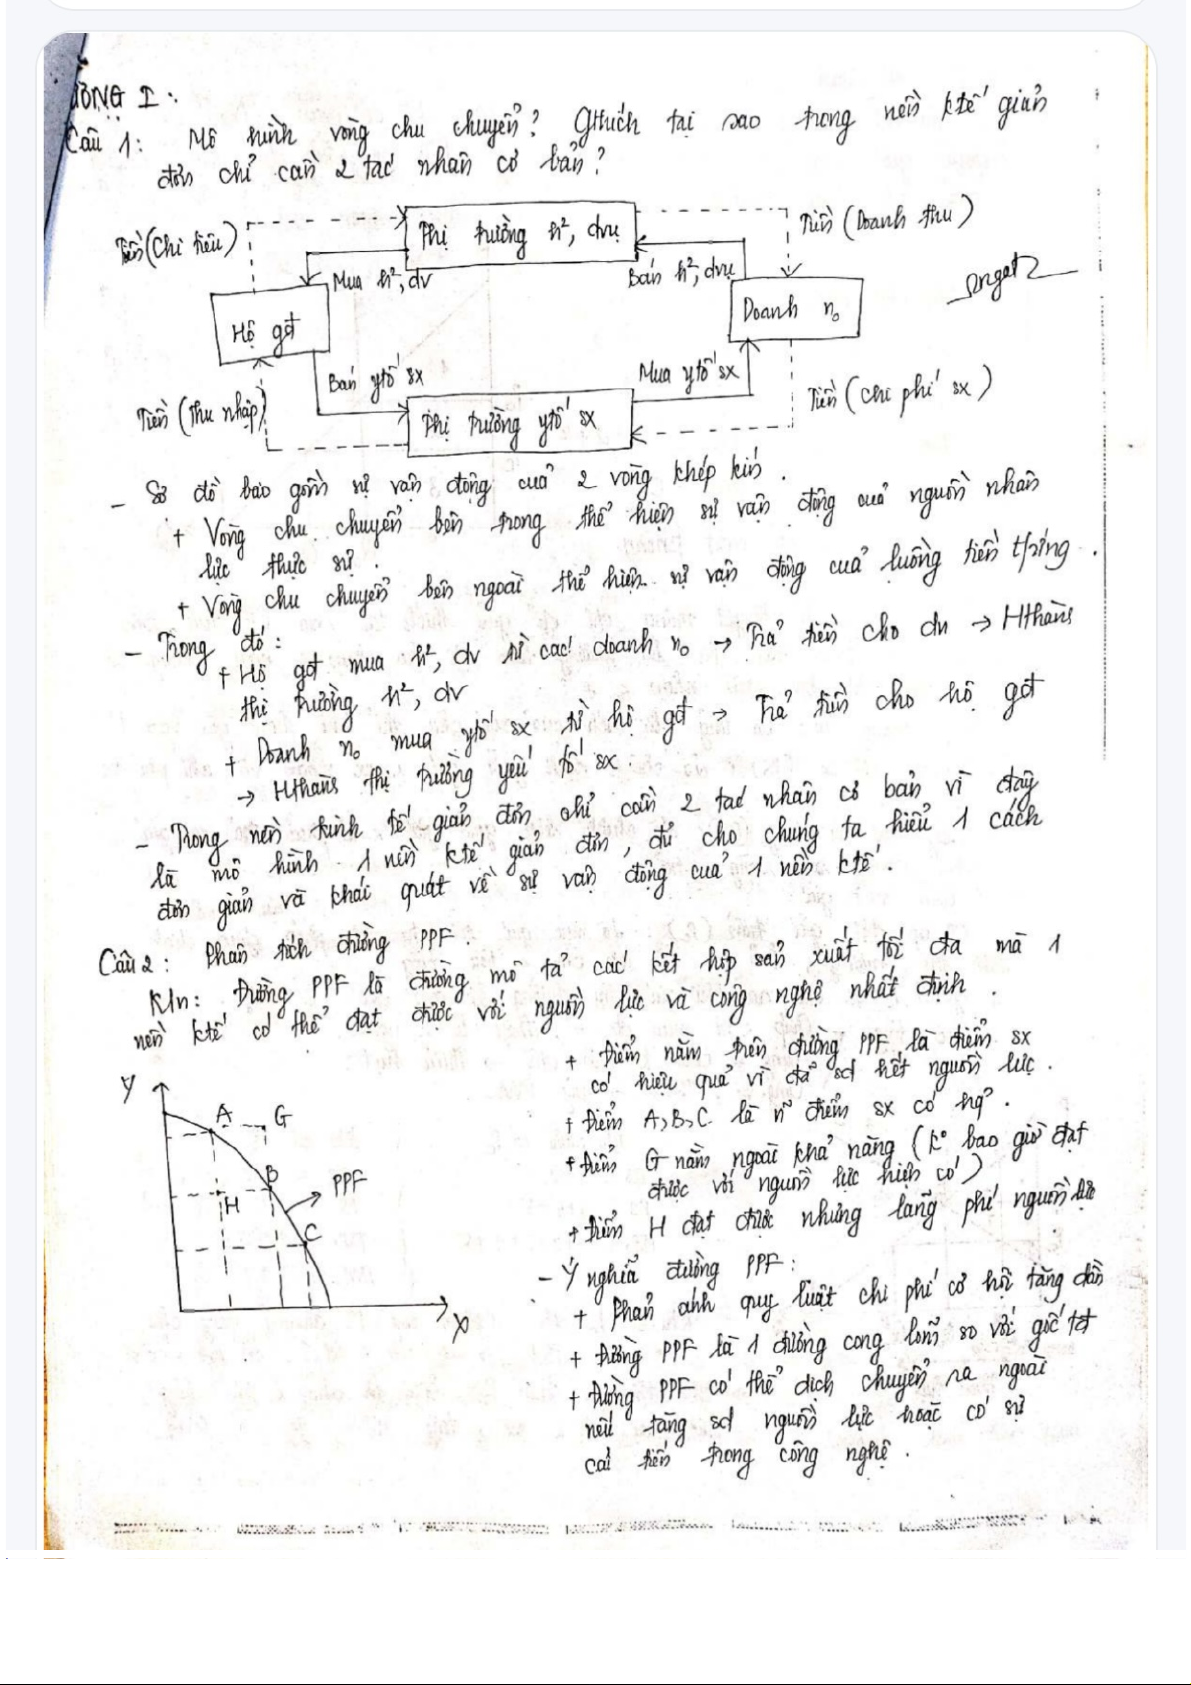 ƯƠNG I:
Câu 1: Mô hình vòng chu chuyển? Gthích tại sao trong nền ktế giản
đơn chỉ cần 2 tác nhân cơ bản?
Tiền (Chi tiêu)
Thị trường h², dvụ
Tiền (Doanh thu)
Mua h², dv
Bán h², dvụ
Hộ gđ
Doanh n₀
Bán ytố sx
Mua ytố sx
Tiền (thu nhập)
Thị trường ytố sx
Tiền (chi phí sx)
- Sơ đồ bao gồm sự vận động của 2 vòng khép kín.
+ Vòng chu chuyển bên trong thể hiện sự vận động của nguồn nhân
lực thực sự.
+ Vòng chu chuyển bên ngoài thể hiện sự vận động của luồng tiền tưởng.
- Trong đó:
+ Hộ gđ mua h², dv từ các doanh n₀ → Trả tiền cho dn → Hthành
thị trường h², dv
+ Doanh n₀ mua ytố sx từ hộ gđ → Trả tiền cho hộ gđ
→ Hthành thị trường yếu tố sx.
- Trong nền kinh tế giản đơn chỉ cần 2 tác nhân cơ bản vì đây
là mô hình 1 nền ktế giản đơn, đủ cho chúng ta hiểu 1 cách
đơn giản và khái quát về sự vận động của 1 nền ktế.
Câu 2: Phân tích đường PPF.
K/n: Đường PPF là đường mô tả các kết hợp sản xuất tối đa mà 1
nền ktế có thể đạt được với nguồn lực và công nghệ nhất định.
Y
A
G
B
H
PPF
C
X
+ Điểm nằm trên đường PPF là điểm sx
có hiệu quả vì đã sd hết nguồn lực.
+ Điểm A, B, C là n~ điểm sx có hq².
+ Điểm G nằm ngoài khả năng (k° bao giờ đạt
được với nguồn lực hiện có)
+ Điểm H đạt được nhưng lãng phí nguồn lực
- Ý nghĩa đường PPF:
+ Phản ánh quy luật chi phí cơ hội tăng dần
+ Đường PPF là 1 đường cong lõm so với gốc tđ
+ Đường PPF có thể dịch chuyển ra ngoài
nếu tăng sd nguồn lực hoặc có sự
cải tiến trong công nghệ.